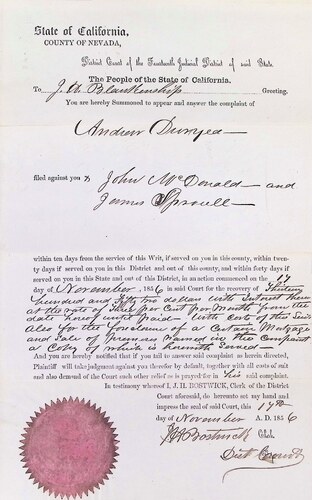 State of California,
COUNTY OF NEVADA,
District Court of the Fourteenth Judicial District of said State.
The People of the State of California.
To J. W. Blankenship Greeting.
You are hereby Summoned to appear and answer the complaint of
Andrew
filed against you & John McDonald and
James Sproull
within ten days from the service of this Writ, if served on you in this county, within twenty
days if served on you in this District and out of this county, and within forty days if
served on you in this State and out of this District, in an action commenced on the 17
day of November, 1856 in said Court for the recovery of Thirteen
hundred and fifty two dollars with Interest
at the rate of Three per Cent per Month from the
date hereof until paid with Costs of this Suit
Also for the foreclosure of a Certain Mortgage
and Sale of premises named in the Complaint
a Copy of which is herewith Served
And you are hereby notified that if you fail to answer said complaint as herein directed,
Plaintiff will take judgment against you therefor by default, together with all costs of suit
and also demand of the Court such other relief as is prayed for in his said complaint.
In testimony whereof I, J. H. BOSTWICK, Clerk of the District
Court aforesaid, do hereunto set my hand and
impress the seal of said Court, this 17th
day of November A. D. 1856
J H Bostwick Clerk.
Dist Court